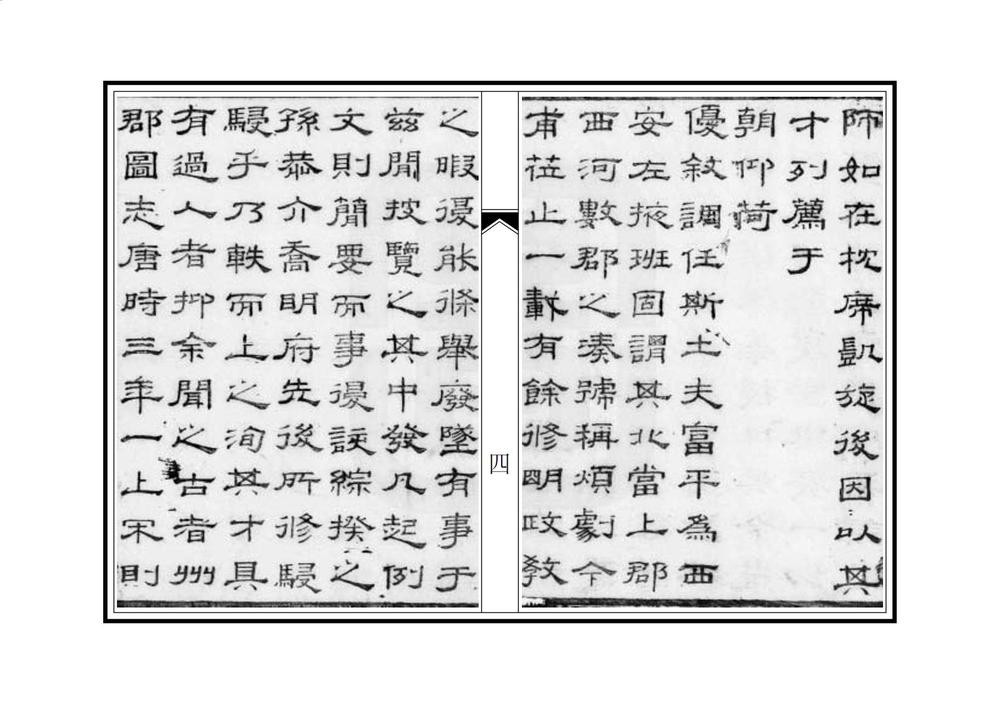 師如在枕席凱旋後因以其
才列薦于
朝仰荷
優敘調任斯土夫富平為西
安左掖班固謂其北當上郡
西河數郡之湊號稱煩劇今
甫莅止一載有餘修明政教
四
之暇復能條舉廢墜有事于
茲間披覽之其中發凡起例
文則簡要而事復該綜揆之
孫恭介喬明府先後所修駸
駸乎乃軼而上之洵其才具
有過人者抑余聞之古者州
郡圖志唐時三年一上宋則